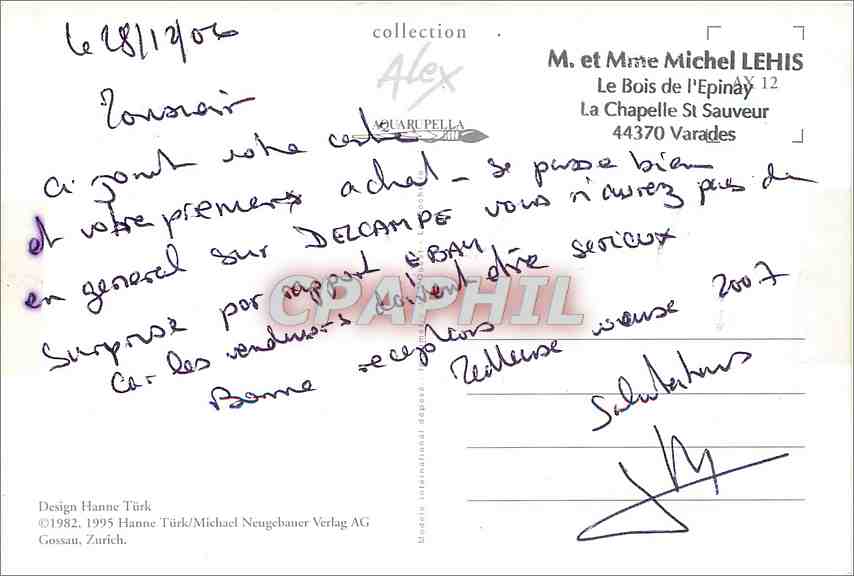 le 28/12/06
collection
Alex
AQUARUPELLA
M. et Mme Michel LEHIS
Le Bois de l'Epinay
AX 12
La Chapelle St Sauveur
44370 Varades
Monsieur
Ci joint votre carte
et votre premiers achat - se passe bien
en general sur DELCAMPE vous n'aurez pas de
surprise par rapport EBAY
Car les vendeurs doivent être serieux
Bonne receptions
Meilleuse voeuse 2007
Salutations
CPAPHIL
Design Hanne Türk
©1982, 1995 Hanne Türk/Michael Neugebauer Verlag AG
Gossau, Zurich.
Modele international déposé